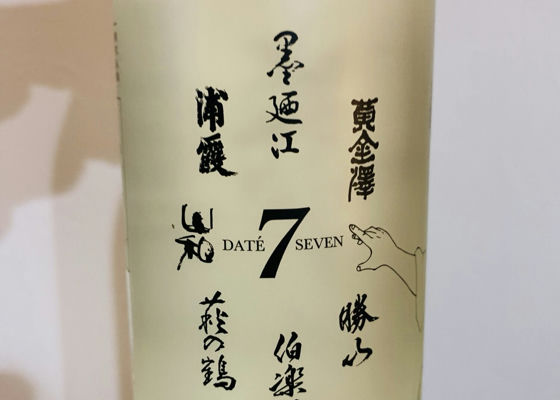 墨廼江
浦霞
黄金澤
山和
DATÉ 7 SEVEN
萩の鶴
勝山
伯楽